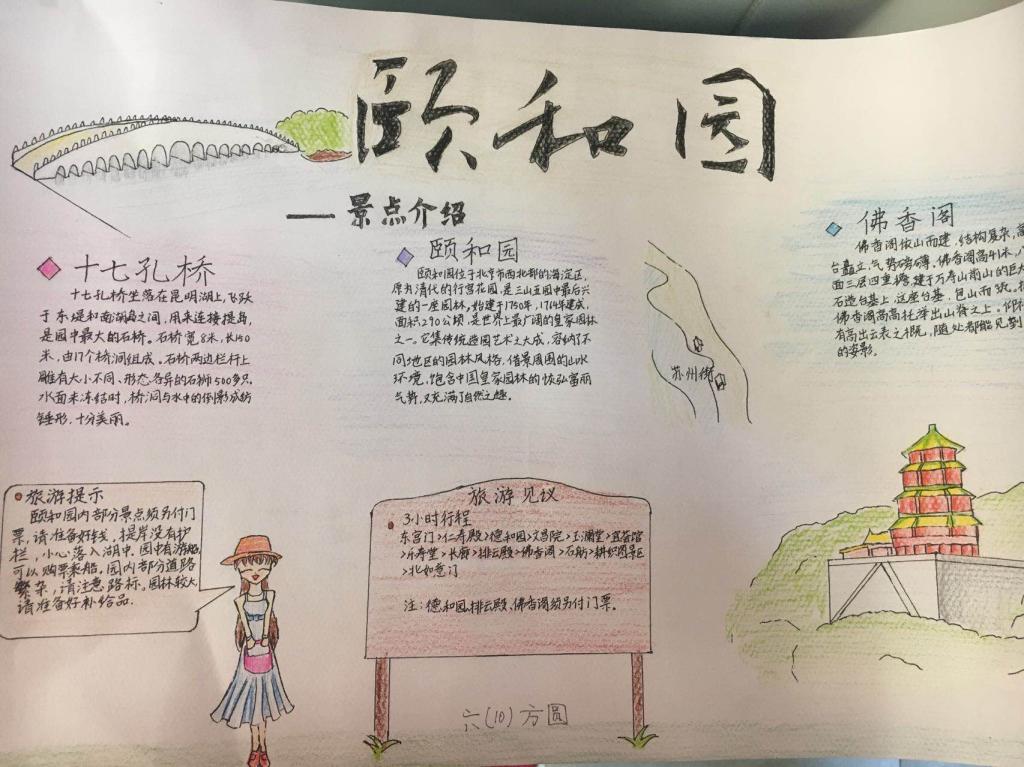 颐和园
—景点介绍
十七孔桥
十七孔桥坐落在昆明湖上,飞跃
于东堤和南湖岛之间,用来连接堤岛,
是园中最大的石桥。石桥宽8米,长150
米,由17个桥洞组成。石桥两边栏杆上
雕有大小不同、形态各异的石狮500多只.
水面未冻结时,桥洞与水中的倒影成纺
锤形,十分美丽。
颐和园
颐和园位于北京市西北部的海淀区,
原为清代的行宫花园,是三山五园中最后兴
建的一座园林,始建于1750年,1764年建成,
面积290公顷,是世界上最广阔的皇家园林
之一。它集传统造园艺术之大成,容纳了不
同地区的园林风格,借景周围的山水
环境,饱含中国皇家园林的恢弘富丽
气势,又充满了自然之趣。
苏州街
佛香阁
佛香阁依山而建,结构复杂,高
台矗立,气势磅礴。佛香阁高41米,
面三层四重檐,建于万寿山前山的巨大
石造台基上,这座台基,包山而筑,
佛香阁高高托举出山脊之上。仰
有高出云表之,随处都能见到
的姿影.
旅游提示
颐和园内部分景点须另付门
票,请准备好钱,提岸没有护
栏,小心落入湖中.园中有游船,
可以购票乘船。园内部分道路
繁杂,请注意路标。园林较大
请准备好补给品.
旅游见议
3小时行程
东宫门>仁寿殿>德和园>文昌院>玉澜堂>宜芸馆
>乐寿堂>长廊>排云殿>佛香阁>石舫>耕织图景区
>北如意门
注:德和园,排云殿,佛香阁须另付门票。
六(10)方圆